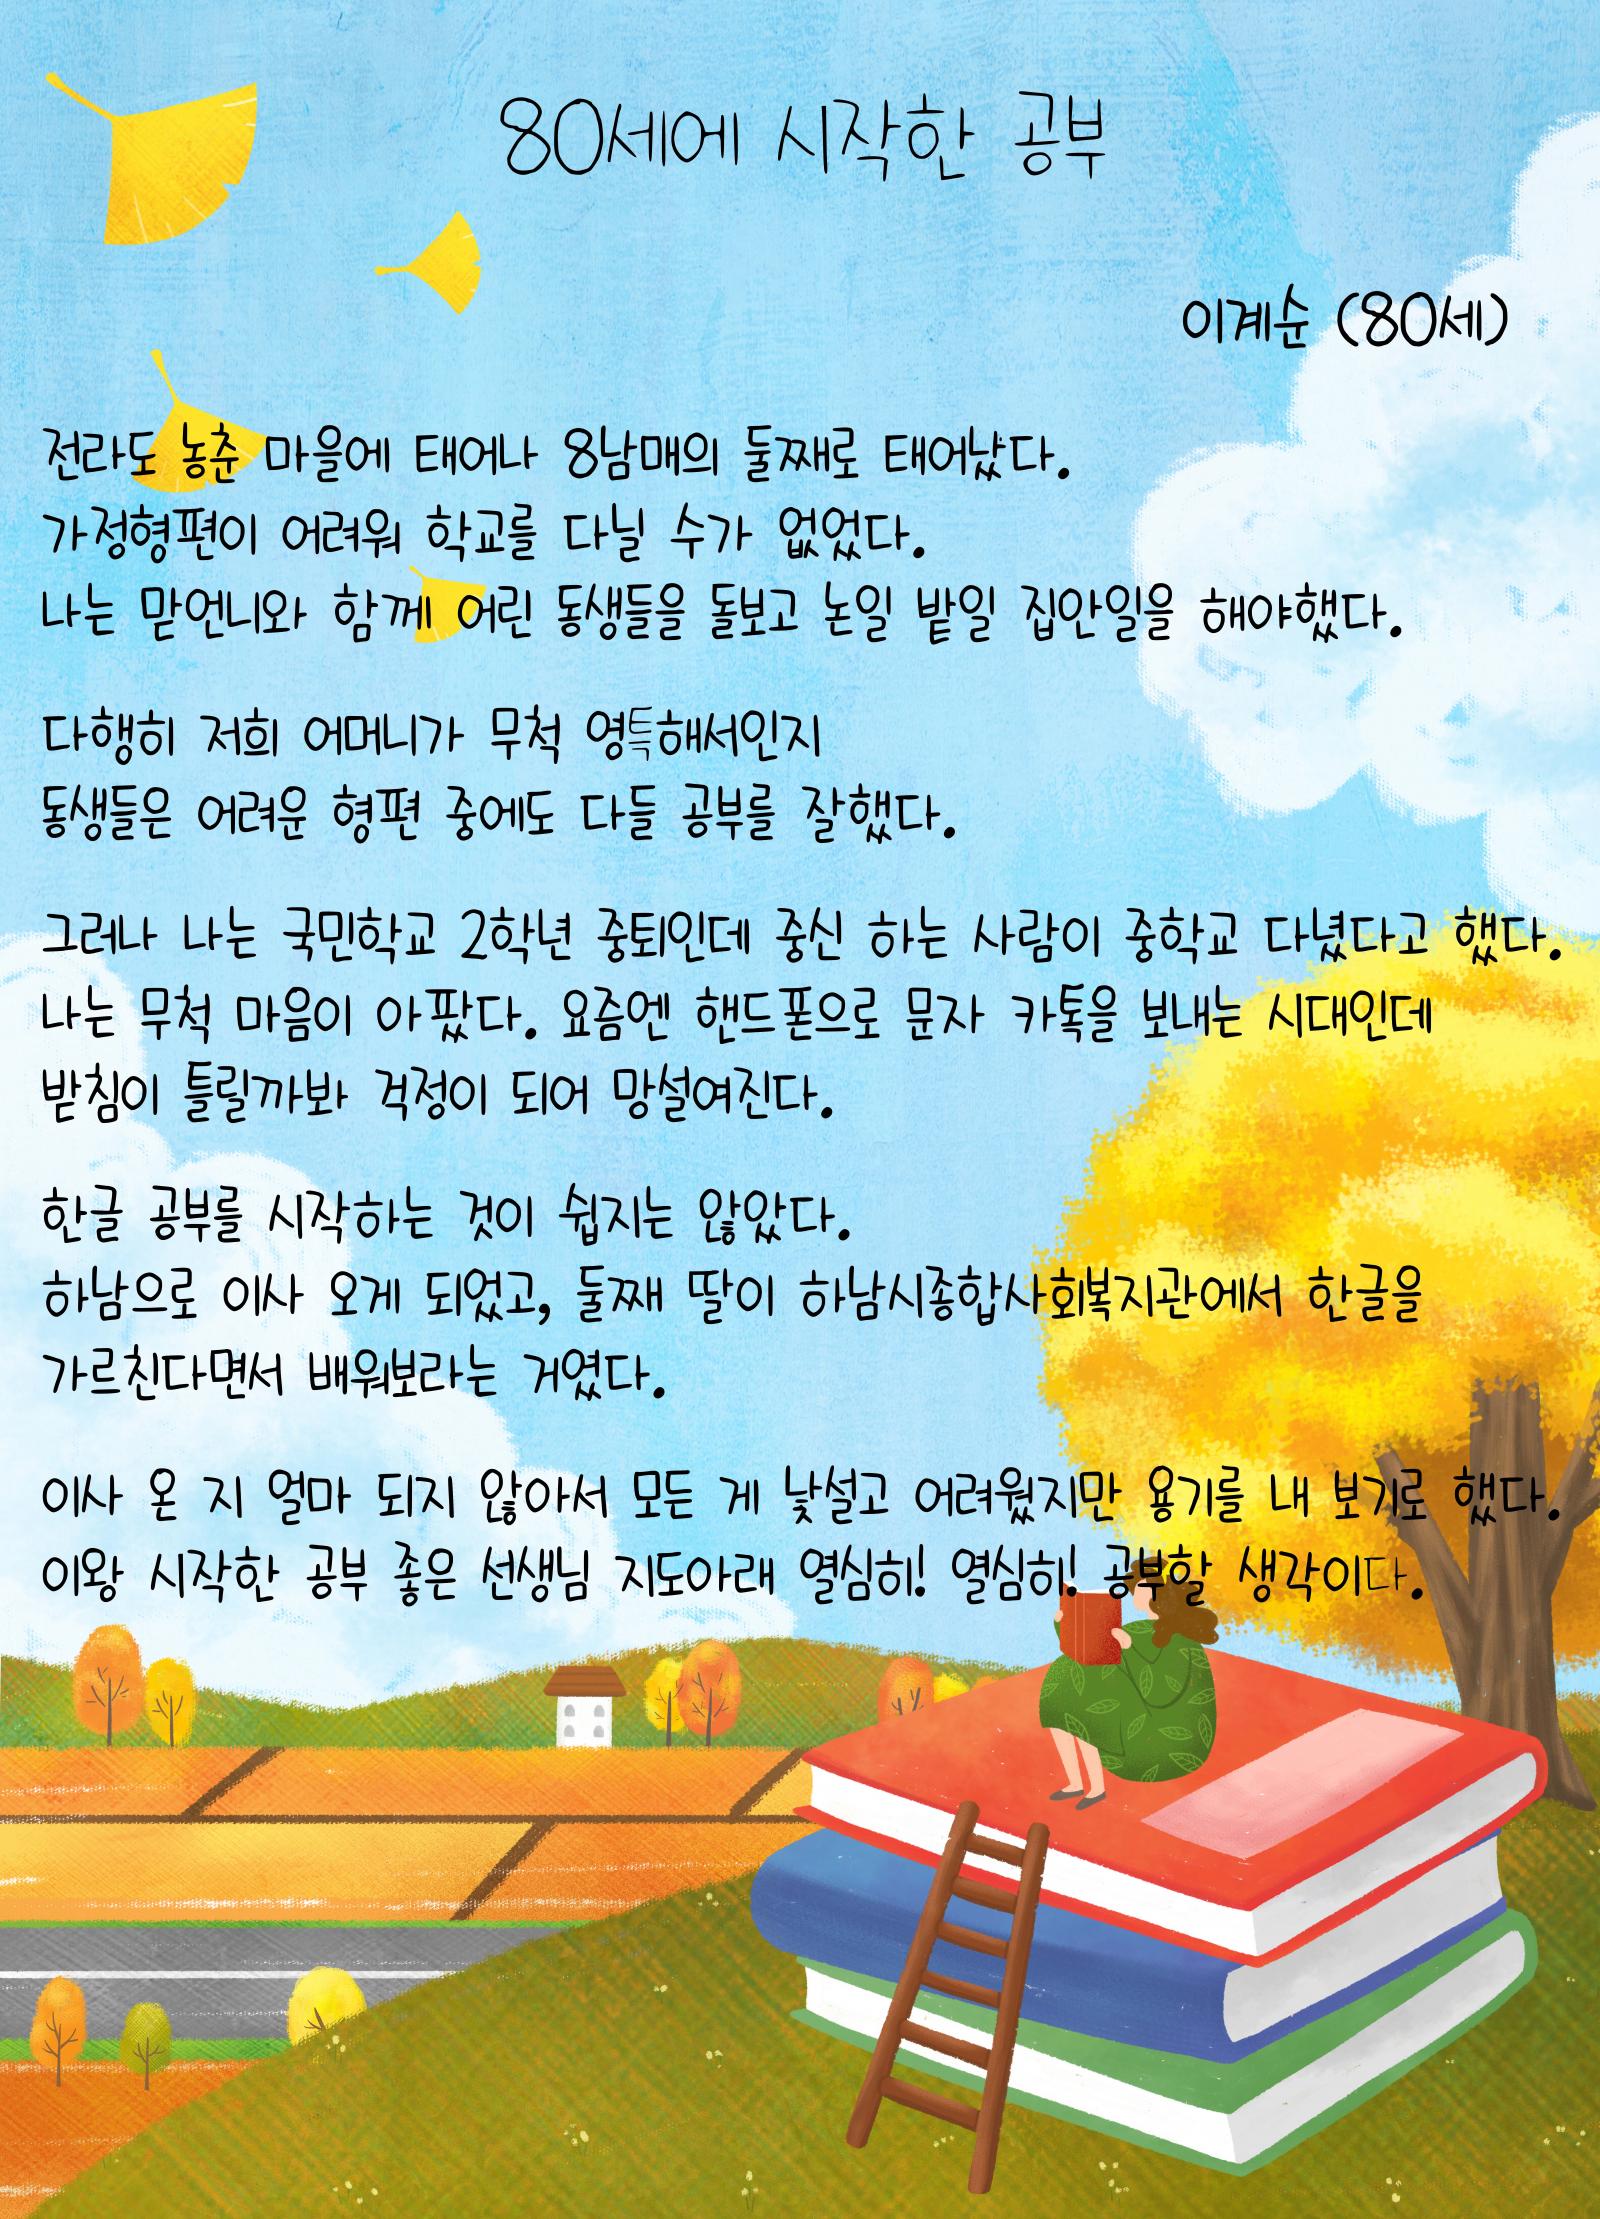 80세에 시작한 공부
이계순 (80세)
전라도 농춘 마을에 태어나 8남매의 둘째로 태어났다.
가정형편이 어려워 학교를 다닐 수가 없었다.
나는 맏언니와 함께 어린 동생들을 돌보고 논일 밭일 집안일을 해야했다.
다행히 저희 어머니가 무척 영특해서인지
동생들은 어려운 형편 중에도 다들 공부를 잘했다.
그러나 나는 국민학교 2학년 중퇴인데 중신 하는 사람이 중학교 다녔다고 했다.
나는 무척 마음이 아팠다. 요즘엔 핸드폰으로 문자 카톡을 보내는 시대인데
받침이 틀릴까봐 걱정이 되어 망설여진다.
한글 공부를 시작하는 것이 쉽지는 않았다.
하남으로 이사 오게 되었고, 둘째 딸이 하남시종합사회복지관에서 한글을
가르친다면서 배워보라는 거였다.
이사 온 지 얼마 되지 않아서 모든 게 낯설고 어려웠지만 용기를 내 보기로 했다.
이왕 시작한 공부 좋은 선생님 지도아래 열심히! 열심히! 공부할 생각이다.